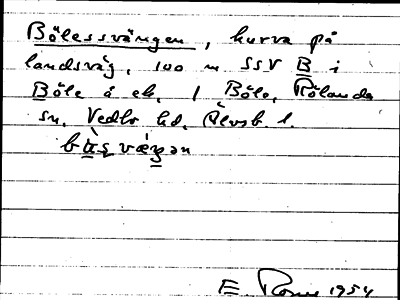 Bölessvängen, kurva på
landsväg, 100 m SSV B i
Böle å ek. 1 Böle, Rölanda
sn, Vedbo hd, Älvsb. l.
E. 1954